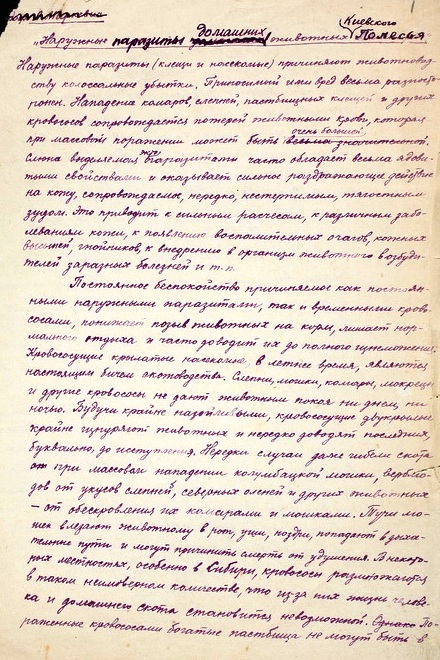 домашних Киевского
„Наружные паразиты животных Полесья
Наружные паразиты (клещи и насекомые) причиняют животновод-
ству колоссальные убытки. Приносимый ими вред весьма разносто-
ронен. Нападения комаров, слепней, пастбищных клещей и других
кровососов сопровождается потерей животными крови, которая
очень большой.
при массовом поражении может быть весьма значительной.
Слюна выделяемая паразитами часто обладает весьма ядови-
тыми свойствами и оказывает сильное раздражающее действие
на кожу, сопровождаемое, нередко, нестерпимым, тягостным
зудом. Это приводит к сильным расчесам, к различным забо-
леваниям кожи, к появлению воспалительных очагов, кожных
высыпей, гнойников, к внедрению в организм животного возбуди-
телей заразных болезней и т.п.
Постоянное беспокойство причиняемое как постоян-
ными наружными паразитами, так и временными крово-
сосами, понижает позыв животных на корм, лишает нор-
мального отдыха и часто доводит их до полного изнеможения.
Кровососущие крылатые насекомые, в летнее время, являются
настоящим бичем скотоводства. Слепни, мошки, комары, мокрецы
и другие кровососы не дают животным покоя ни днем, ни
ночью. Будучи крайне назойливыми, кровососущие двукрылые
крайне изнуряют животных и нередко доводят последних,
буквально, до исступления. Нередки случаи даже гибели скота
от при массовом нападении колумбацкой мошки, верблю-
дов от укусов слепней, северных оленей и других животных
– от обескровления их комарами и мошками. Тучи мо-
шек влезают животному в рот, уши, ноздри, попадают в дыха-
тельные пути и могут причинить смерть от удушения. В некото-
рых местностях, особенно в Сибири, кровососы размножаются
в таком неимоверном количестве, что из за них жизнь челове-
ка и домашнего скота становится невозможной. Однако По-
раженные кровососами богатые пастбища не могут быть в